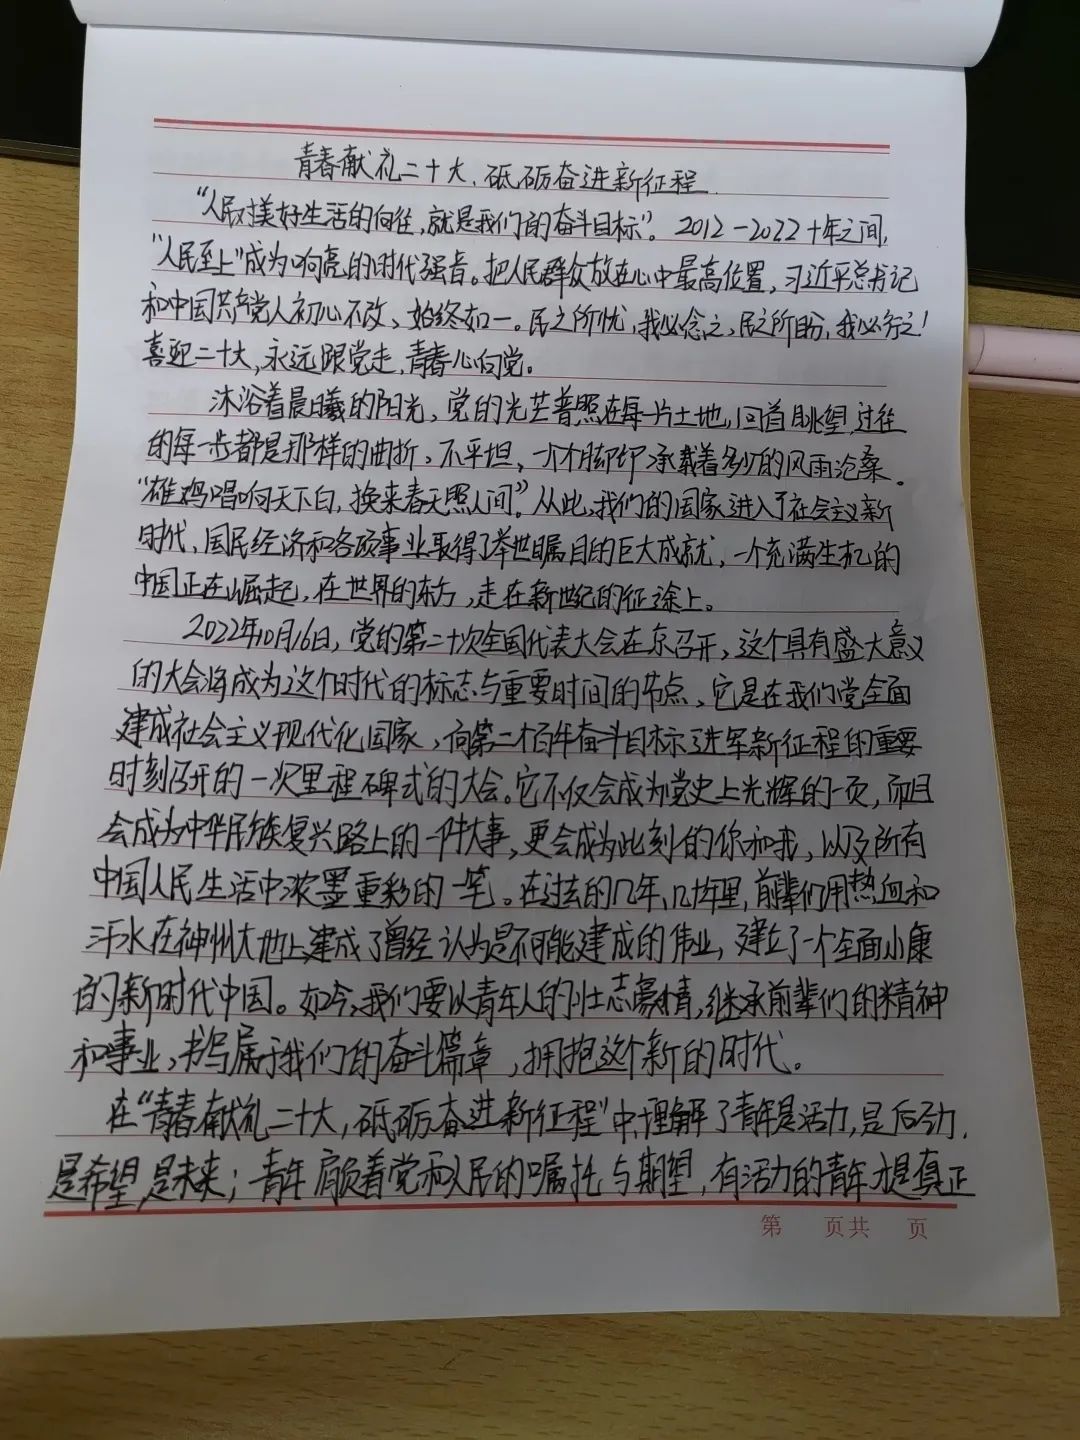 青春献礼二十大、砥砺奋进新征程
“人民对美好生活的向往，就是我们的奋斗目标”。2012-2022十年之间，
“人民至上”成为响亮的时代强音。把人民群众放在心中最高位置，习近平总书记
和中国共产党人初心不改、始终如一。民之所忧，我必念之，民之所盼，我必行之！
喜迎二十大，永远跟党走，青春心向党。
沐浴着晨曦的阳光，党的光芒普照在每一片土地，回首眺望，过往
的每一步都是那样的曲折、不平坦，一个个脚印承载着多少的风雨沧桑。
“雄鸡唱响天下白，换来春天照人间”。从此，我们的国家进入了社会主义新
时代，国民经济和各项事业取得了举世瞩目的巨大成就，一个充满生机的
中国正在崛起，在世界的东方，走在新世纪的征途上。
2022年10月16日，党的第二十次全国代表大会在京召开，这个具有盛大意义
的大会将成为这个时代的标志与重要时间的节点，它是在我们党全面
建成社会主义现代化国家，向第二个百年奋斗目标进军新征程的重要
时刻召开的一次里程碑式的大会。它不仅会成为党史上光辉的一页，而且
会成为中华民族复兴路上的一件大事，更会成为此刻的你和我，以及所有
中国人民生活中浓墨重彩的一笔。在过去的几年、几十年里，前辈们用热血和
汗水在神州大地上建成了曾经认为是不可能建成的伟业，建立了一个全面小康
的新时代中国。如今，我们要以青年人的壮志豪情，继承前辈们的精神
和事业，书写属于我们的奋斗篇章，拥抱这个新的时代。
在“青春献礼二十大，砥砺奋进新征程”中，理解了青年是活力，是后劲，
是希望，是未来；青年肩负着党和人民的嘱托与期望，有活力的青年才是真正
第 页共 页